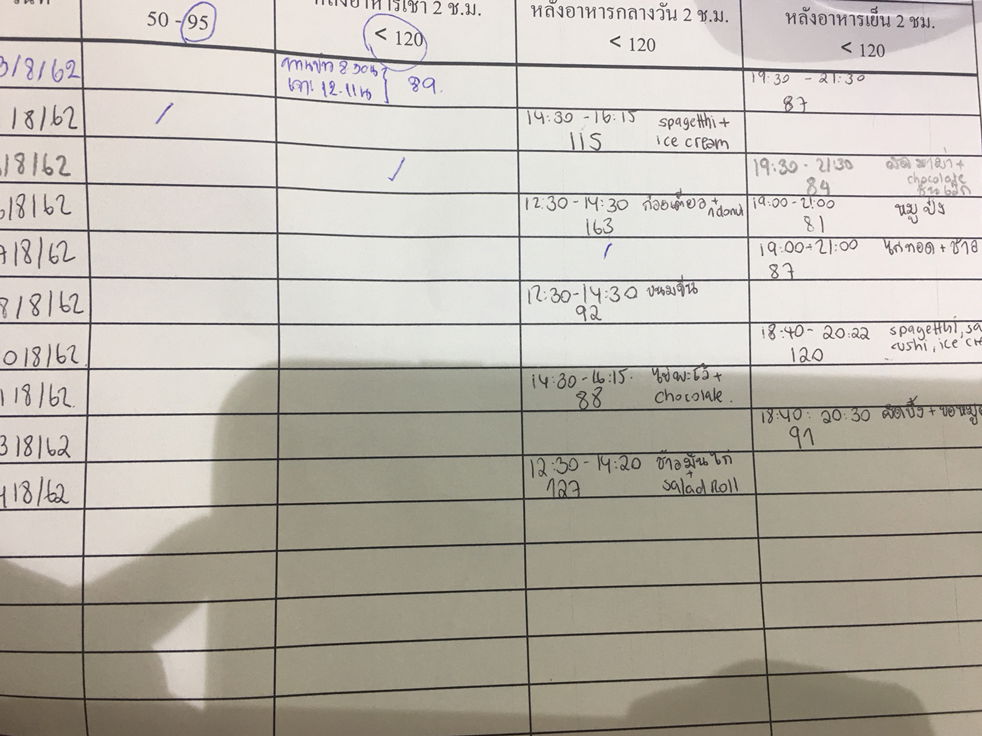 50 - 95
หลังอาหารเช้า 2 ช.ม.
< 120
หลังอาหารกลางวัน 2 ช.ม.
< 120
หลังอาหารเย็น 2 ชม.
< 120
3/8/62
89.
19:30 - 21:30
87
18/62
/
14:30 - 16:15 spagetthi +
115 ice cream
18/62
✓
19:30 - 21:30
84 chocolate
18/62
12:30 - 14:30 ก๋วยเตี๋ยว +
163
19:00 - 21:00 หมูปิ้ง
81
18/62
/
19:00 - 21:00 ไก่ทอด + ข้าว
87
8/8/62
12:30 - 14:30 ขนมจีน
92
018/62
18:40 - 20:22 spagetthi, sa
120 sushi, ice cre
118/62
14:30 - 16:15.
88 chocolate.
318/62
18:40 : 20:30
91
18/62
12:30 - 14:20 ข้าวมันไก่
+
127 salad Roll